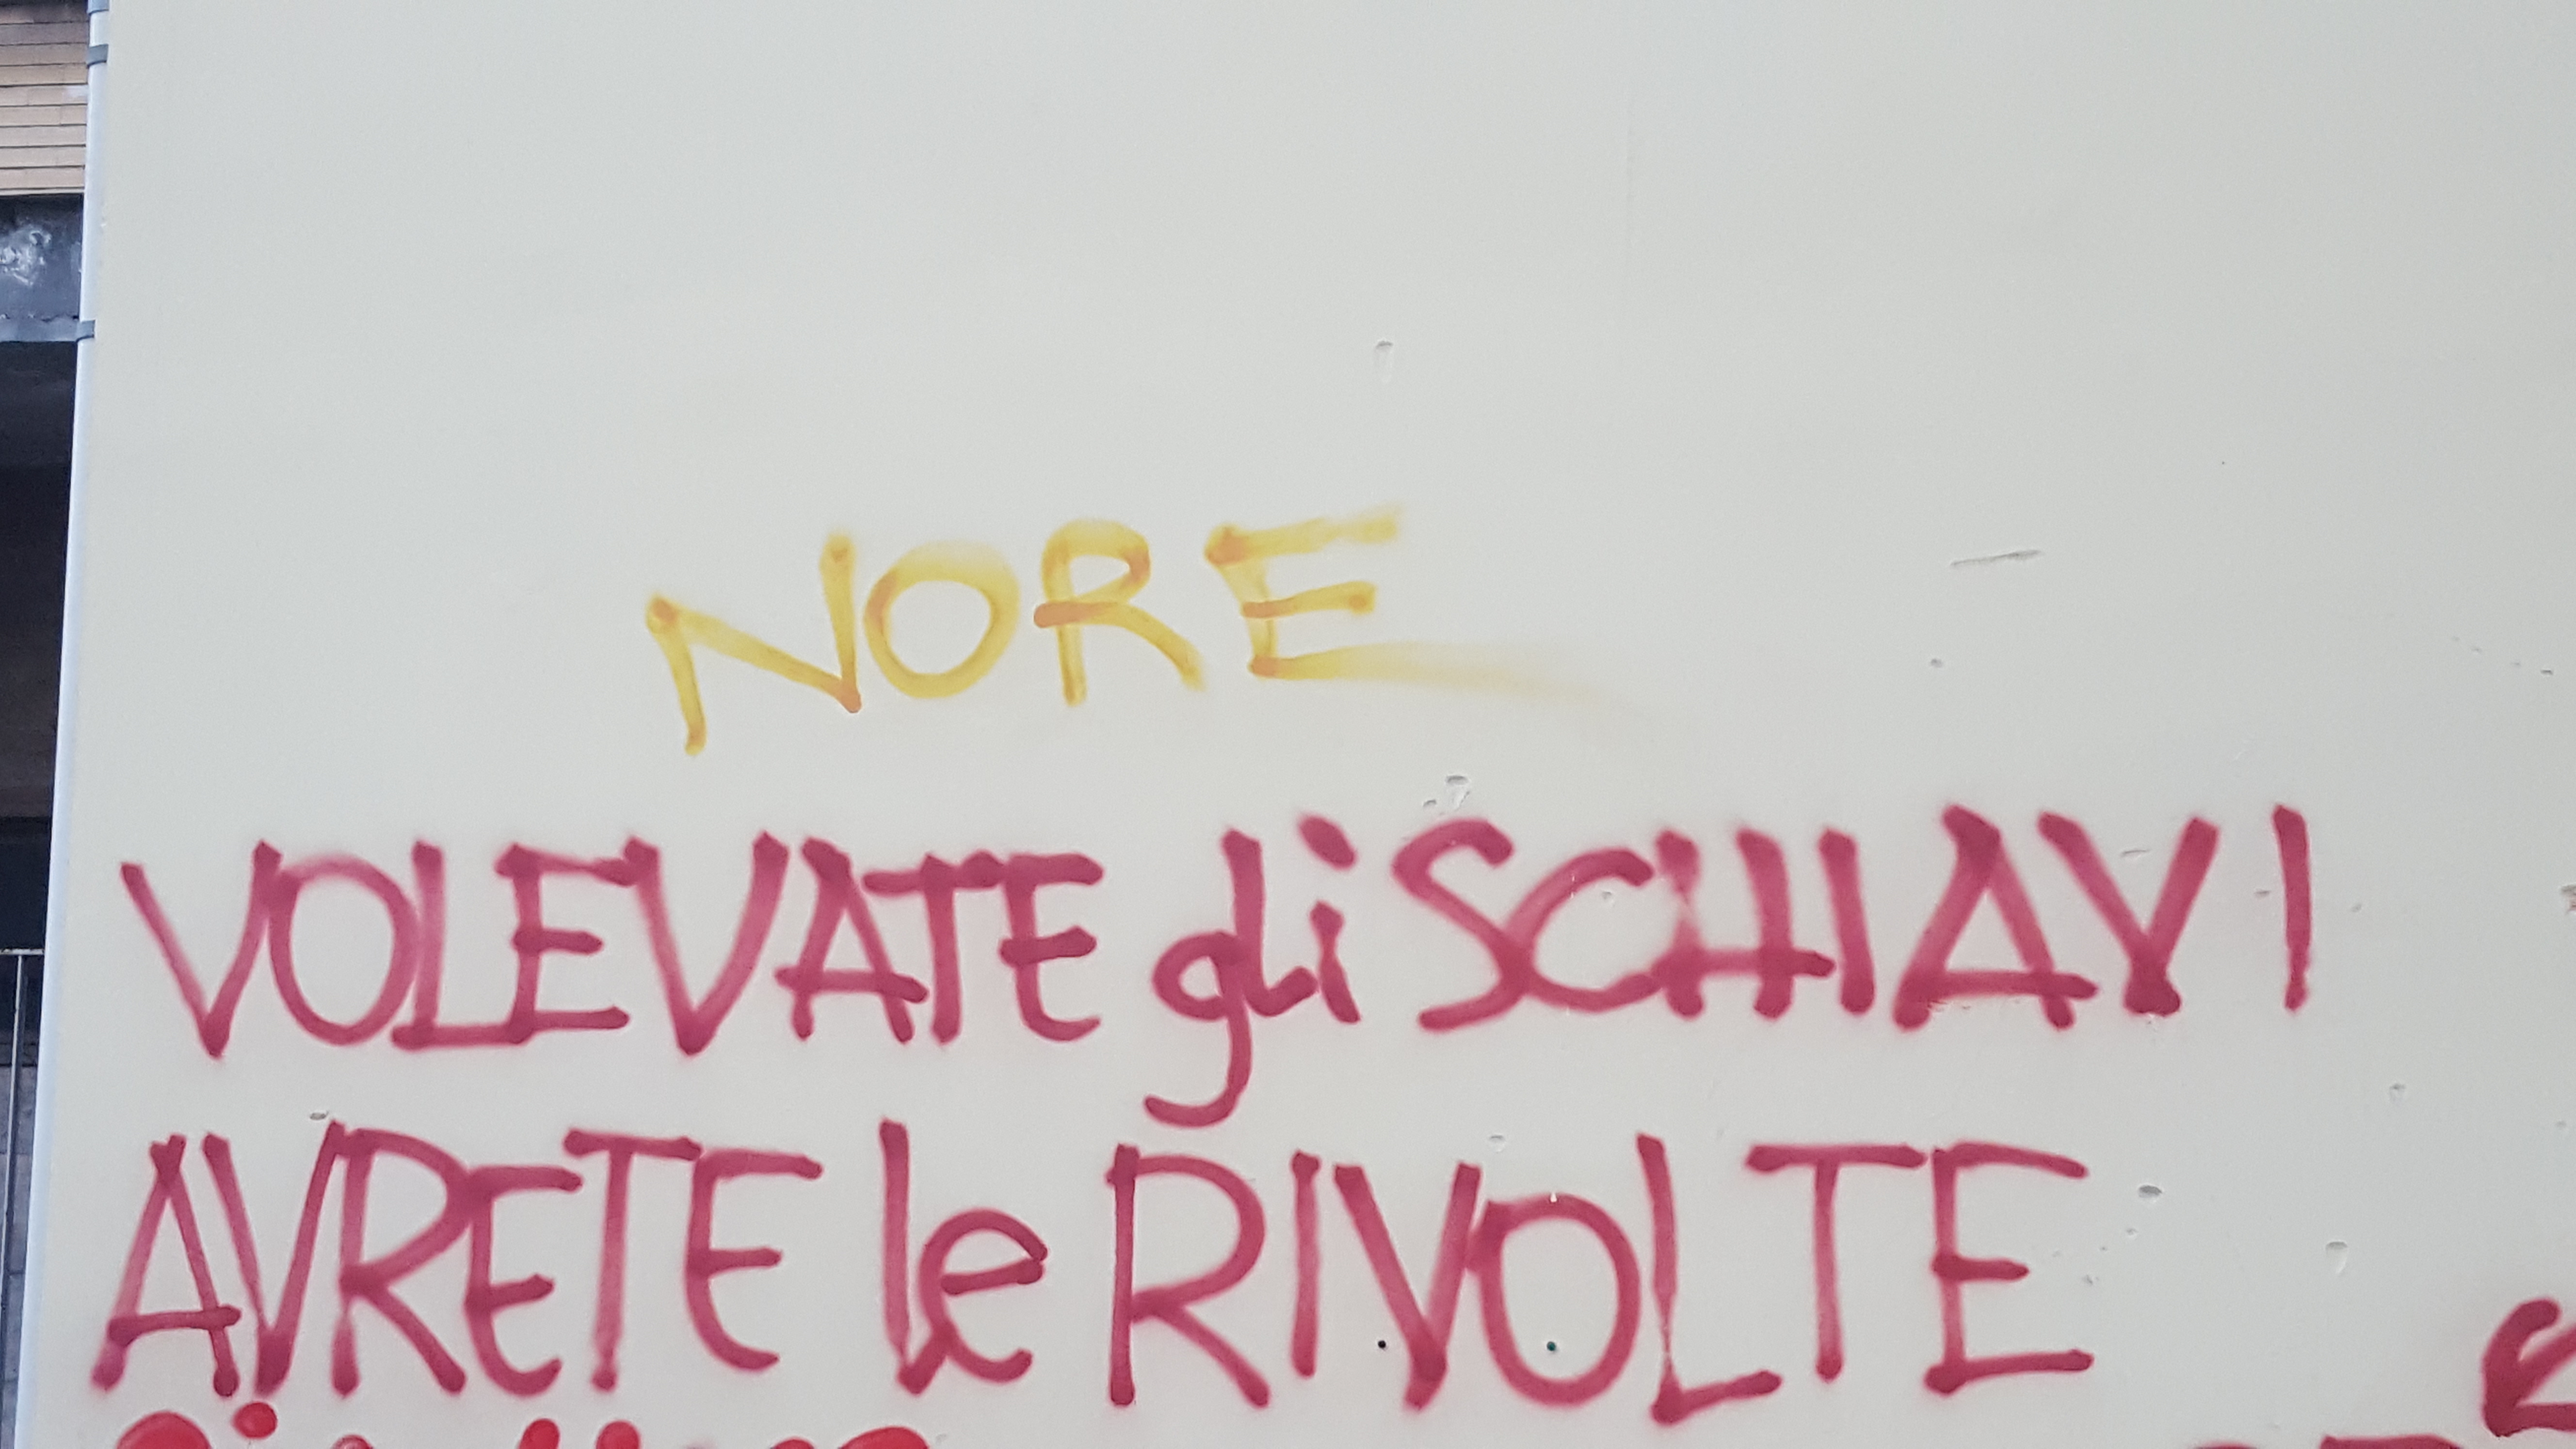 NORE
VOLEVATE gli SCHIAVI
AVRETE le RIVOLTE